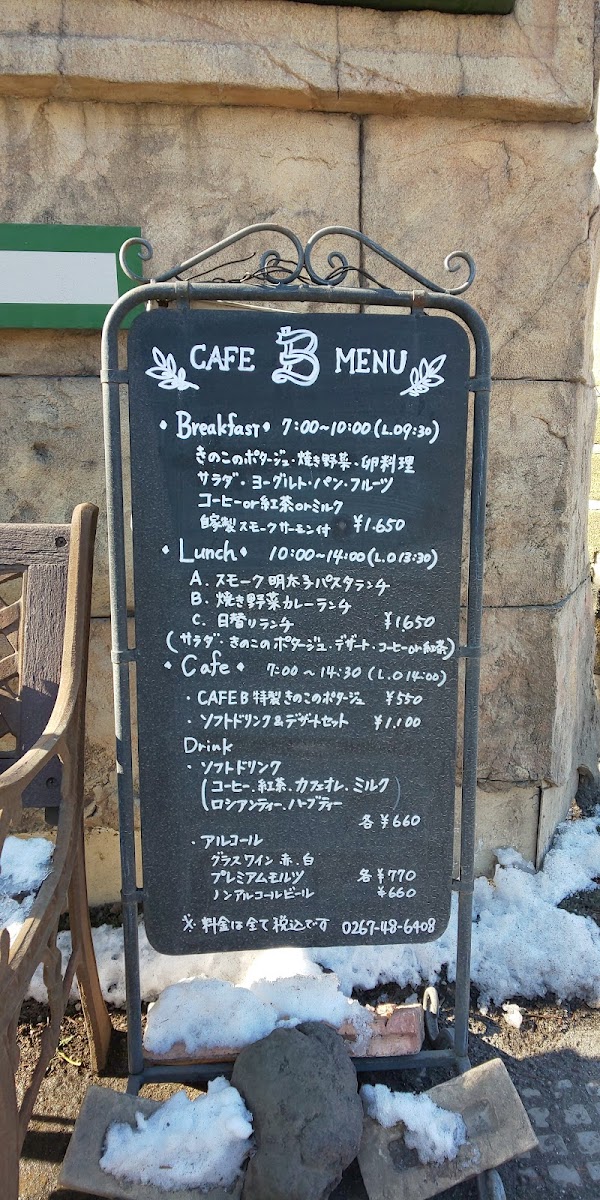 CAFE B MENU
・Breakfast・ 7:00~10:00(L.O9:30)
きのこのポタージュ・焼き野菜・卵料理
サラダ・ヨーグルト・パン・フルーツ
コーヒーor紅茶orミルク
自家製スモークサーモン付 ¥1.650
・Lunch・ 10:00~14:00(L.O13:30)
A. スモーク明太子パスタランチ
B. 焼き野菜カレーランチ
C. 日替りランチ ¥1650
(サラダ・きのこのポタージュ・デザート・コーヒーor紅茶)
・Cafe・ 7:00~14:30(L.O14:00)
・CAFE B 特製きのこのポタージュ ¥550
・ソフトドリンク&デザートセット ¥1.100
Drink
・ソフトドリンク
(コーヒー.紅茶.カフェオレ.ミルク
ロシアンティー.ハーブティー)
各¥660
・アルコール
グラスワイン 赤.白 各¥770
プレミアムモルツ
ノンアルコールビール ¥660
※料金は全て税込です 0267-48-6408